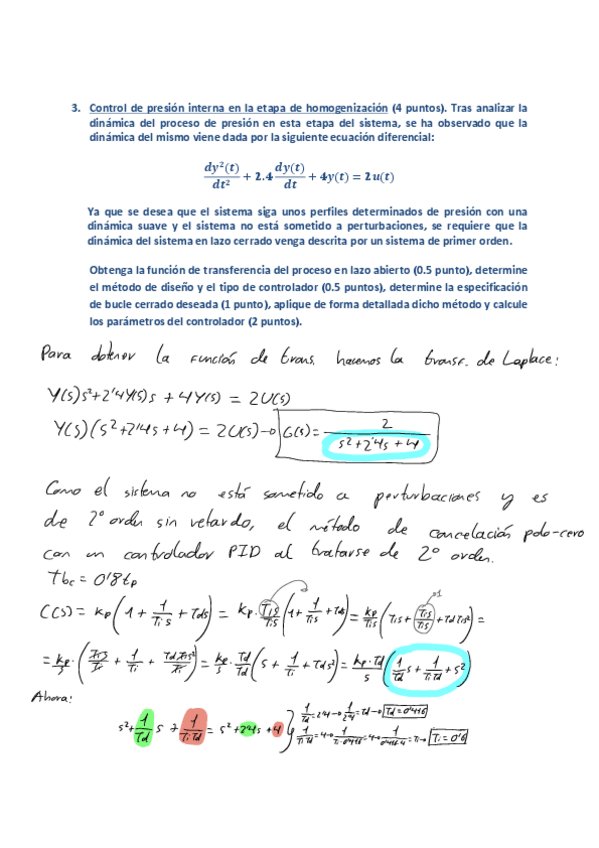 3. Control de presión interna en la etapa de homogenización (4 puntos). Tras analizar la
dinámica del proceso de presión en esta etapa del sistema, se ha observado que la
dinámica del mismo viene dada por la siguiente ecuación diferencial:
dy²(t)/dt² + 2.4 dy(t)/dt + 4y(t) = 2u(t)
Ya que se desea que el sistema siga unos perfiles determinados de presión con una
dinámica suave y el sistema no está sometido a perturbaciones, se requiere que la
dinámica del sistema en lazo cerrado venga descrita por un sistema de primer orden.
Obtenga la función de transferencia del proceso en lazo abierto (0.5 punto), determine
el método de diseño y el tipo de controlador (0.5 puntos), determine la especificación
de bucle cerrado deseada (1 punto), aplique de forma detallada dicho método y calcule
los parámetros del controlador (2 puntos).
Para obtener la función de trans. hacemos la transf. de Laplace:
Y(s)s²+2'4Y(s)s + 4Y(s) = 2U(s)
Y(s)(s²+2'4s+4) = 2U(s)→ G(s) = 2/(s²+2'4s+4)
Como el sistema no está sometido a perturbaciones y es
de 2º orden sin retardo, el método de cancelación polo-cero
con un controlador PID al tratarse de 2º orden.
Tbc = 0'8tp
C(s) = kp(1 + 1/(Tis) + Tds) = kp · Tis/Tis (1 + 1/(Tis) + Tds) = kp/(Tis) (Tis + Tis/Tis + TdTis²) =
= kp/s (Tis/Ti + 1/Ti + TdTis²/Ti) = kp/s · Td/Td (s + 1/Ti + Tds²) = kp·Td/s (1/Td s + 1/(TiTd) + s²)
Ahora:
s² + 1/Td s + 1/(TiTd) = s² + 2'4s + 4
1/Td = 2'4 → 1/2'4 = Td → Td = 0'416
1/(TiTd) = 4 → 1/(Ti·0'416) = 4 → 1/(0'416·4) = Ti → Ti = 0'6